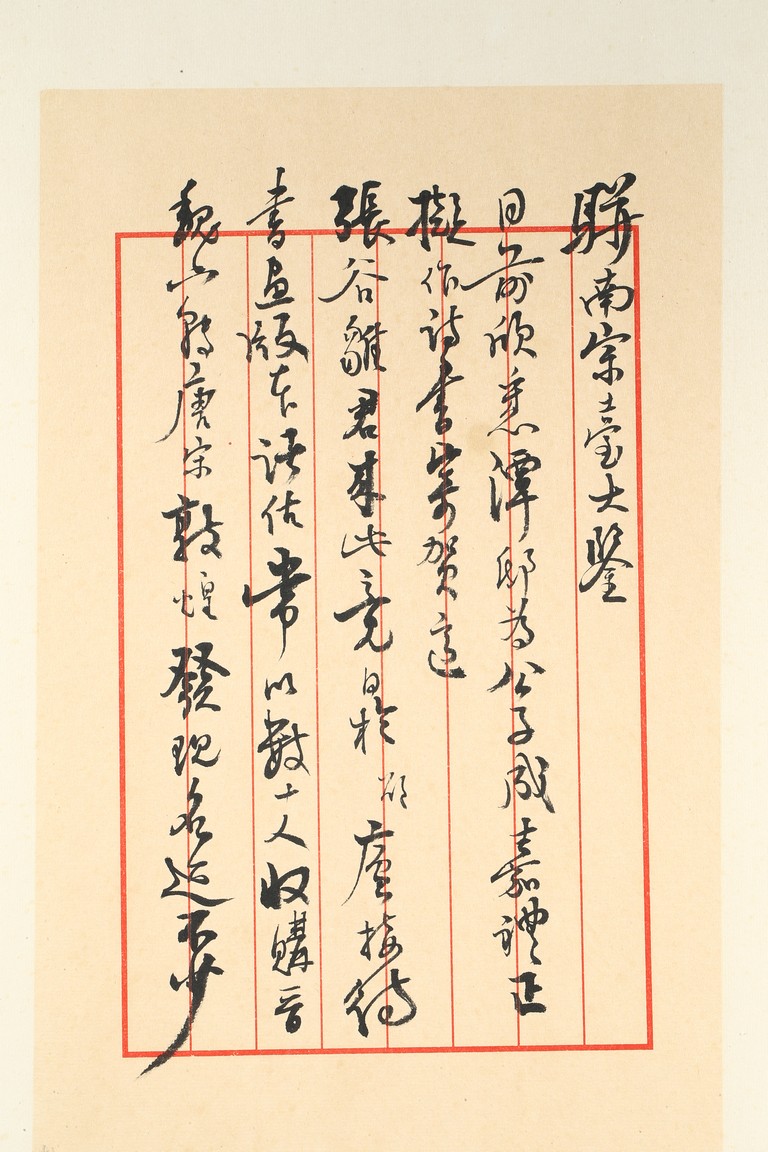 駢南宗臺大鑒
日前欣悉潭邸為公子成嘉禮正
擬作詩書寄賀適
張谷雛君來此竟日於頌廬接待
書畫版本諸估常以數十人收購晉
魏六朝唐宋敦煌發現名迹不少